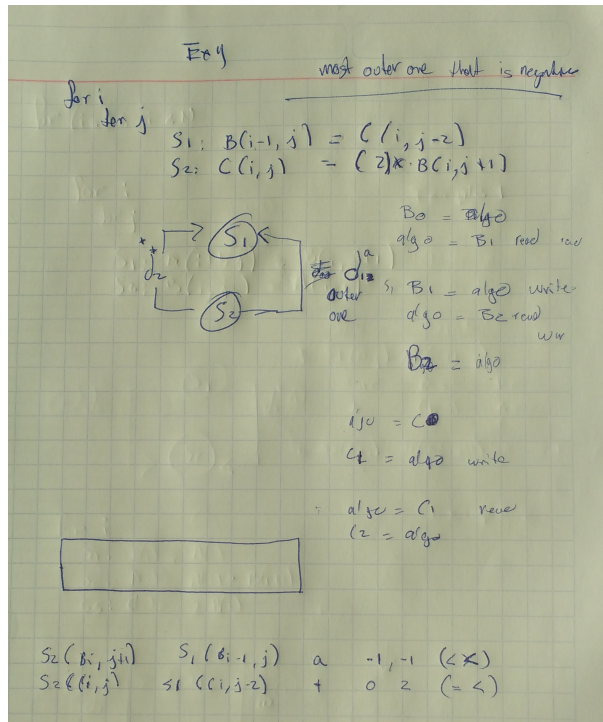 Ex 4
most outer one that is negative
for i
for j
S1: B(i-1, j) = C(i, j-2)
S2: C(i, j) = (2)* B(i, j+1)
B0 = algo
algo = B1 read
S1
++
d2
d12 a
outer
one
S2
S1 B1 = algo write
algo = B2 read
B2 = algo
algo = C0
C1 = algo write
algo = C1
C2 = algo
S2 (Bi, j+1) S1 (Bi-1, j) a -1, -1 (<
S2 C(i, j) S1 (Ci, j-2) + 0 2 (= <)